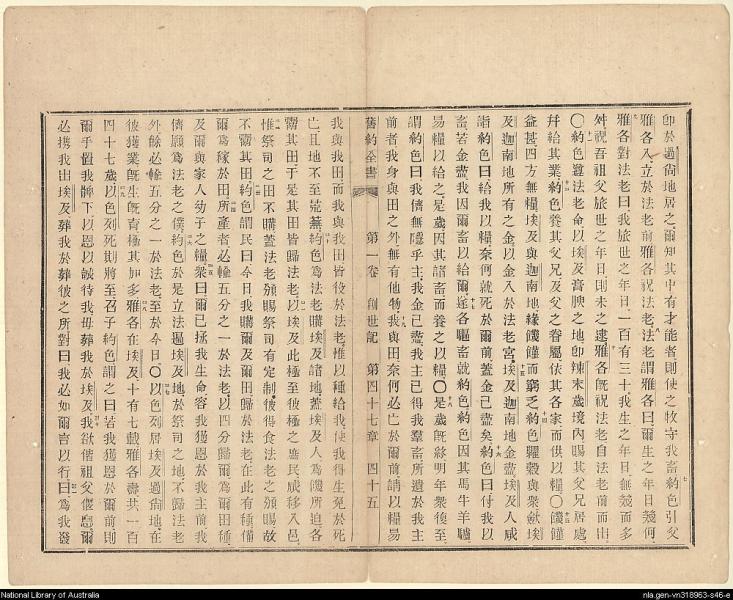 卽於過尙地居之爾知其中有才能者則使之牧守我畜約色引父
雅各入立於法老前雅各祝法老法老謂雅各曰爾生之年日幾何
雅各對法老曰我旅世之年日一百有三十我生之年日無幾而多
舛視吾祖父旅世之年日則未之逮雅各旣祝法老自法老前而出
〇約色遵法老命以埃及膏腴之地卽辣末歲境內賜其父兄居處
幷給其業約色養其父兄及父之眷屬依其各家而供以糧〇饑饉
益甚四方無糧埃及與迦南地緣饑饉而窮乏約色糶穀與衆歛埃
及迦南地所有之金以金入於法老宮埃及迦南地金盡埃及人咸
詣約色曰給我以糧奈何就死於爾前蓋金已盡矣約色曰付我以
畜若金盡我因爾畜以給爾遂各驅畜就約色約色因其馬牛羊驢
易糧以給之是歲因其諸畜而養之以糧〇是歲旣終明年衆復至
謂約色曰我儕無隱乎主我金已盡我主已得我羣畜所遺於我主
前者我身與田之外無有他物我與田奈何必亡於爾前請以糧易
舊約全書 第一卷 創世記 第四十七章 四十五
我與我田而我與我田皆役於法老惟以種給我使我得生免於死
亡且地不至荒蕪約色爲法老購埃及諸地蓋埃及人爲饑所迫各
鬻其田于是其田皆歸法老以埃及此極至彼極之庶民咸移入邑
惟祭司之田不購蓋法老頒賜祭司有定制彼得食法老之頒賜故
不鬻其田約色謂民曰今日我購爾及爾田歸於法老在此有種俾
爾爲稼於田所產者必輸五分之一於法老以四分歸爾爲爾田種
及爾與家人幼子之糧衆曰爾已拯我生命容我獲恩於我主前我
儕願爲法老之僕約色於是立法邇埃及地於祭司之地不歸法老
外餘必輸五分之一於法老至於今日〇以色列居埃及過尙地在
彼獲業旣生旣育極其加多雅各在埃及十有七載雅各壽共一百
四十七歲以色列死期將至召子約色謂之曰若我獲恩於爾前則
爾手置我髀下以恩以誠待我毋葬我於埃及我欲偕祖父偃息爾
必携我出埃及葬我於葬彼之所對曰我必如爾言以行曰爲我發
National Library of Australia
nla.gen-vn318963-s46-e